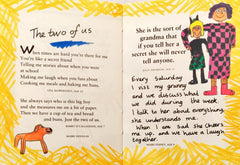 The two of us
When times are hard you're there for me
You're like a secret friend
Telling me stories about when you were
at school
Making me laugh when you fuss about
Cooking me meals and baking me buns.
She always says who is this big boy
and she measures me on a bit of paper.
Then we have a cup of tea and bread
and buns. Just the two of us.
She is the sort of
grandma that
if you tell her a
secret she will
never tell anyone.
Every Saturday
I visit my granny
and we discuss what
we did during the week.
I talk to her about everything
she understands me.
When I am sad she cheers
me up, and we have a laugh
together.